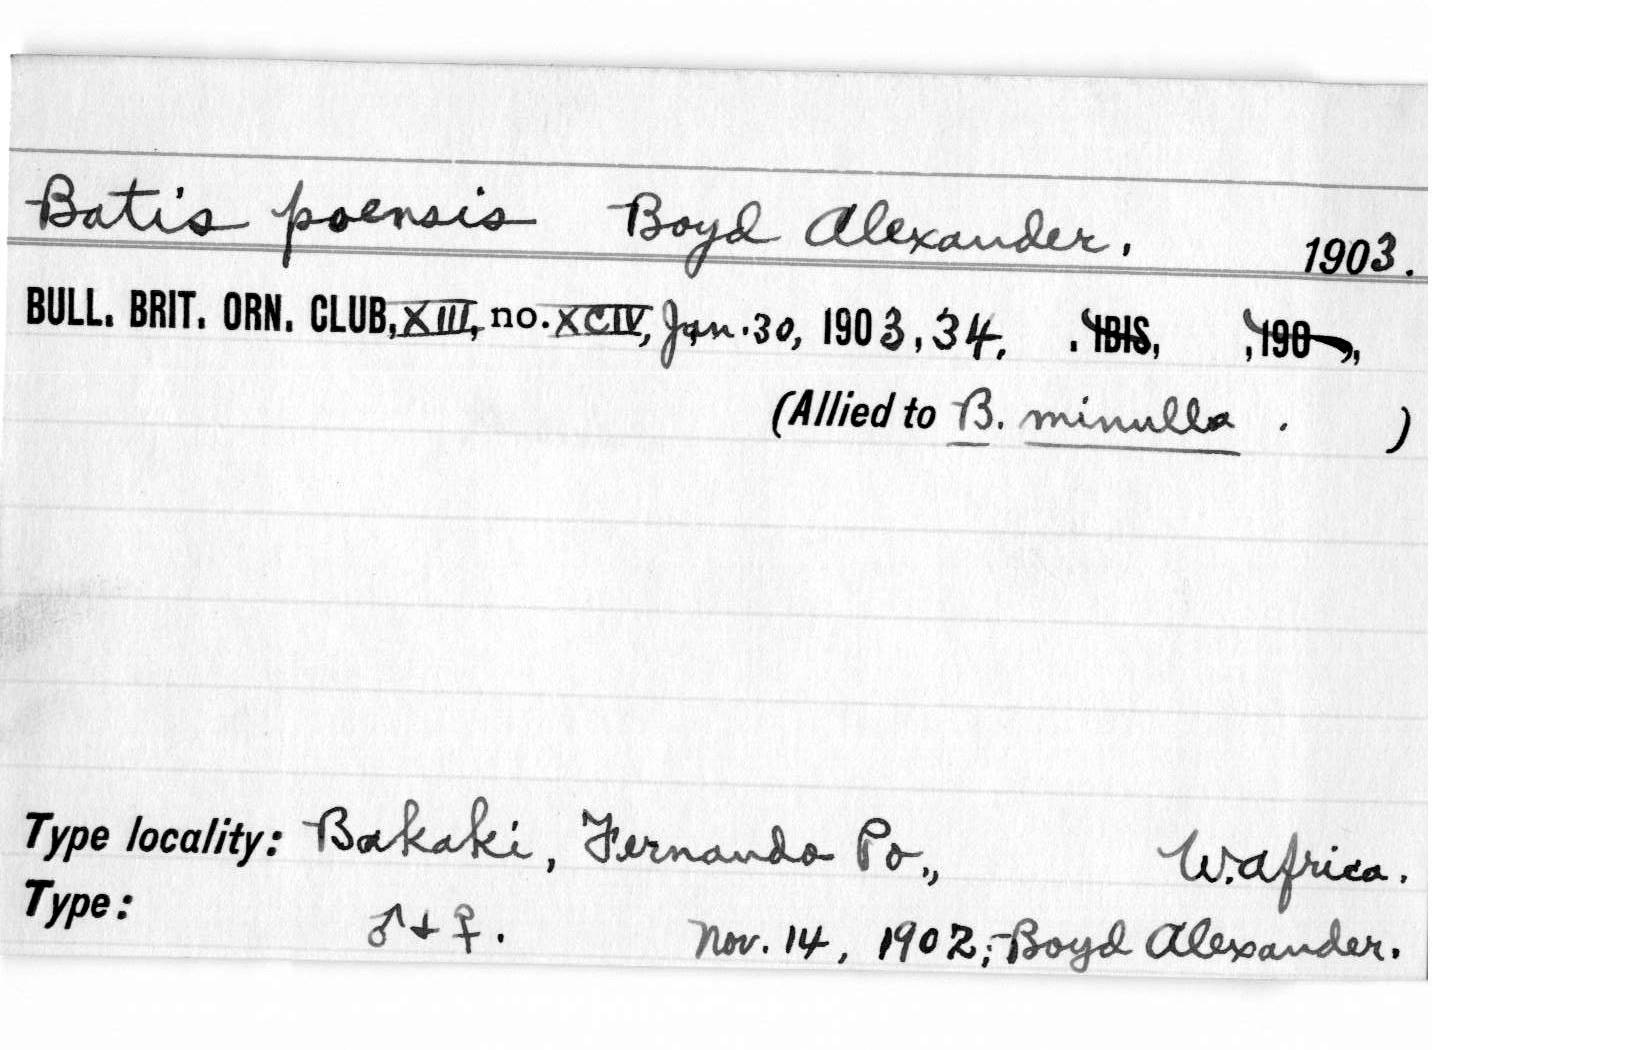 Batis poensis Boyd Alexander. 1903.
BULL. BRIT. ORN. CLUB, XIII, no. XCIV, Jan. 30, 1903, 34. . IBIS, , 190 ,
(Allied to B. minulla . )
Type locality: Bakaki, Fernando Po,, W. Africa.
Type: ♂ + ♀. Nov. 14, 1902; Boyd Alexander.